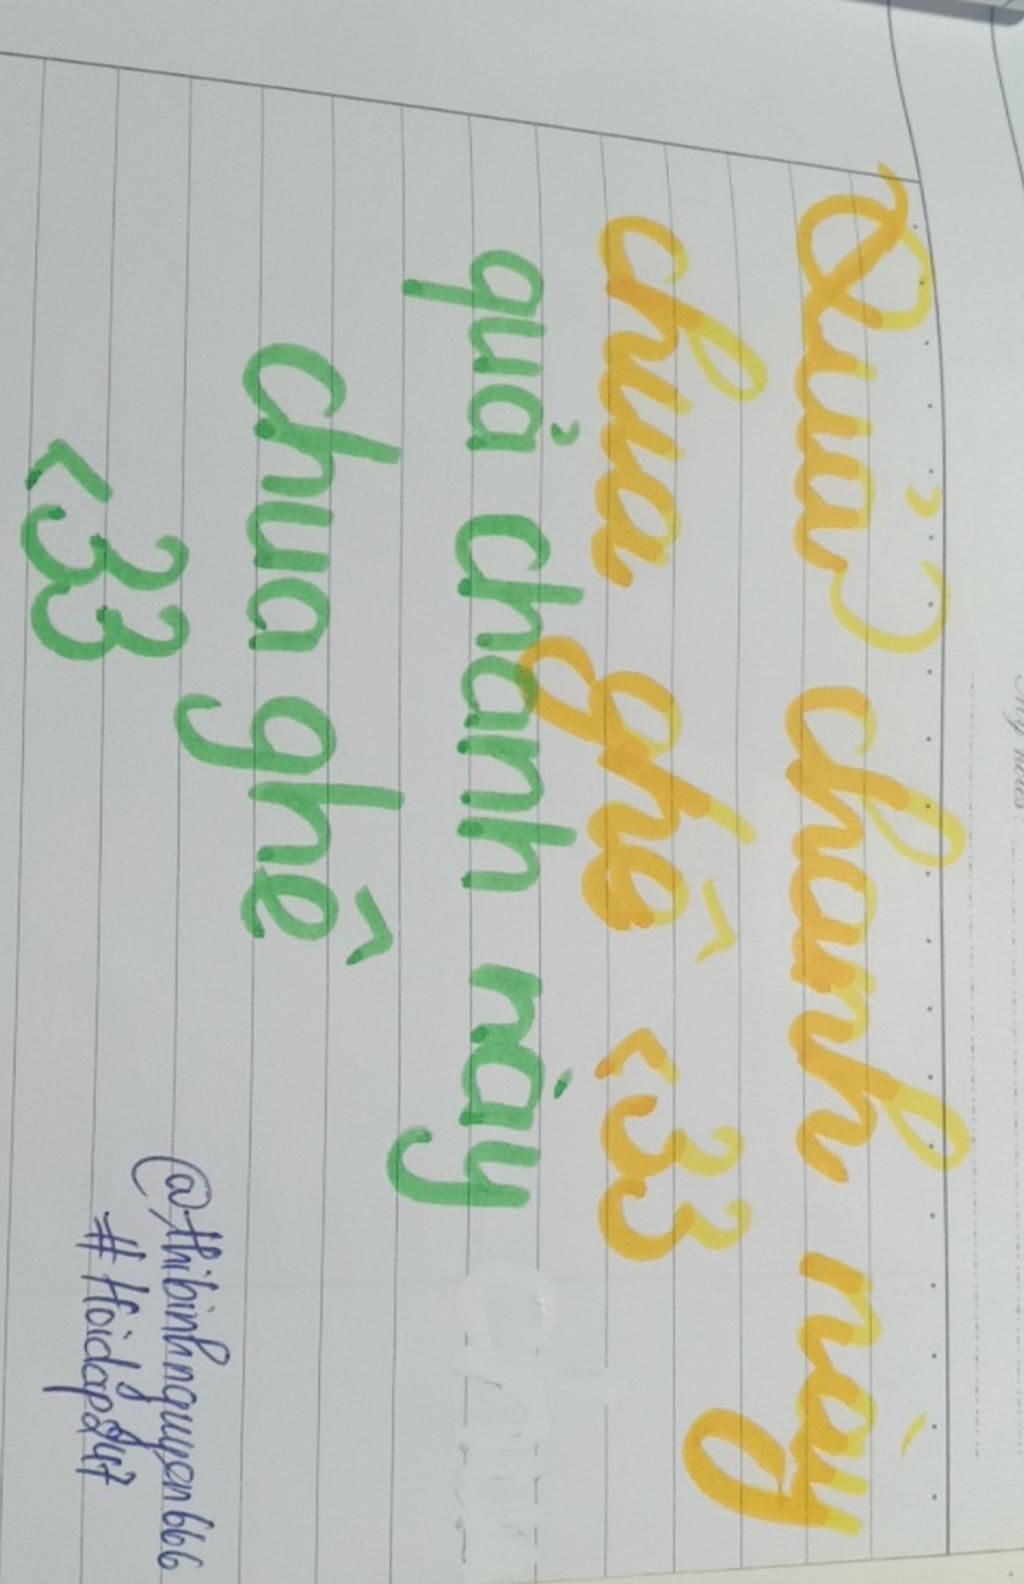 Quả chanh này
chua ghê <33
quả chanh này
chua ghê
<33
@thibinhnguyen666
#Hoidap247